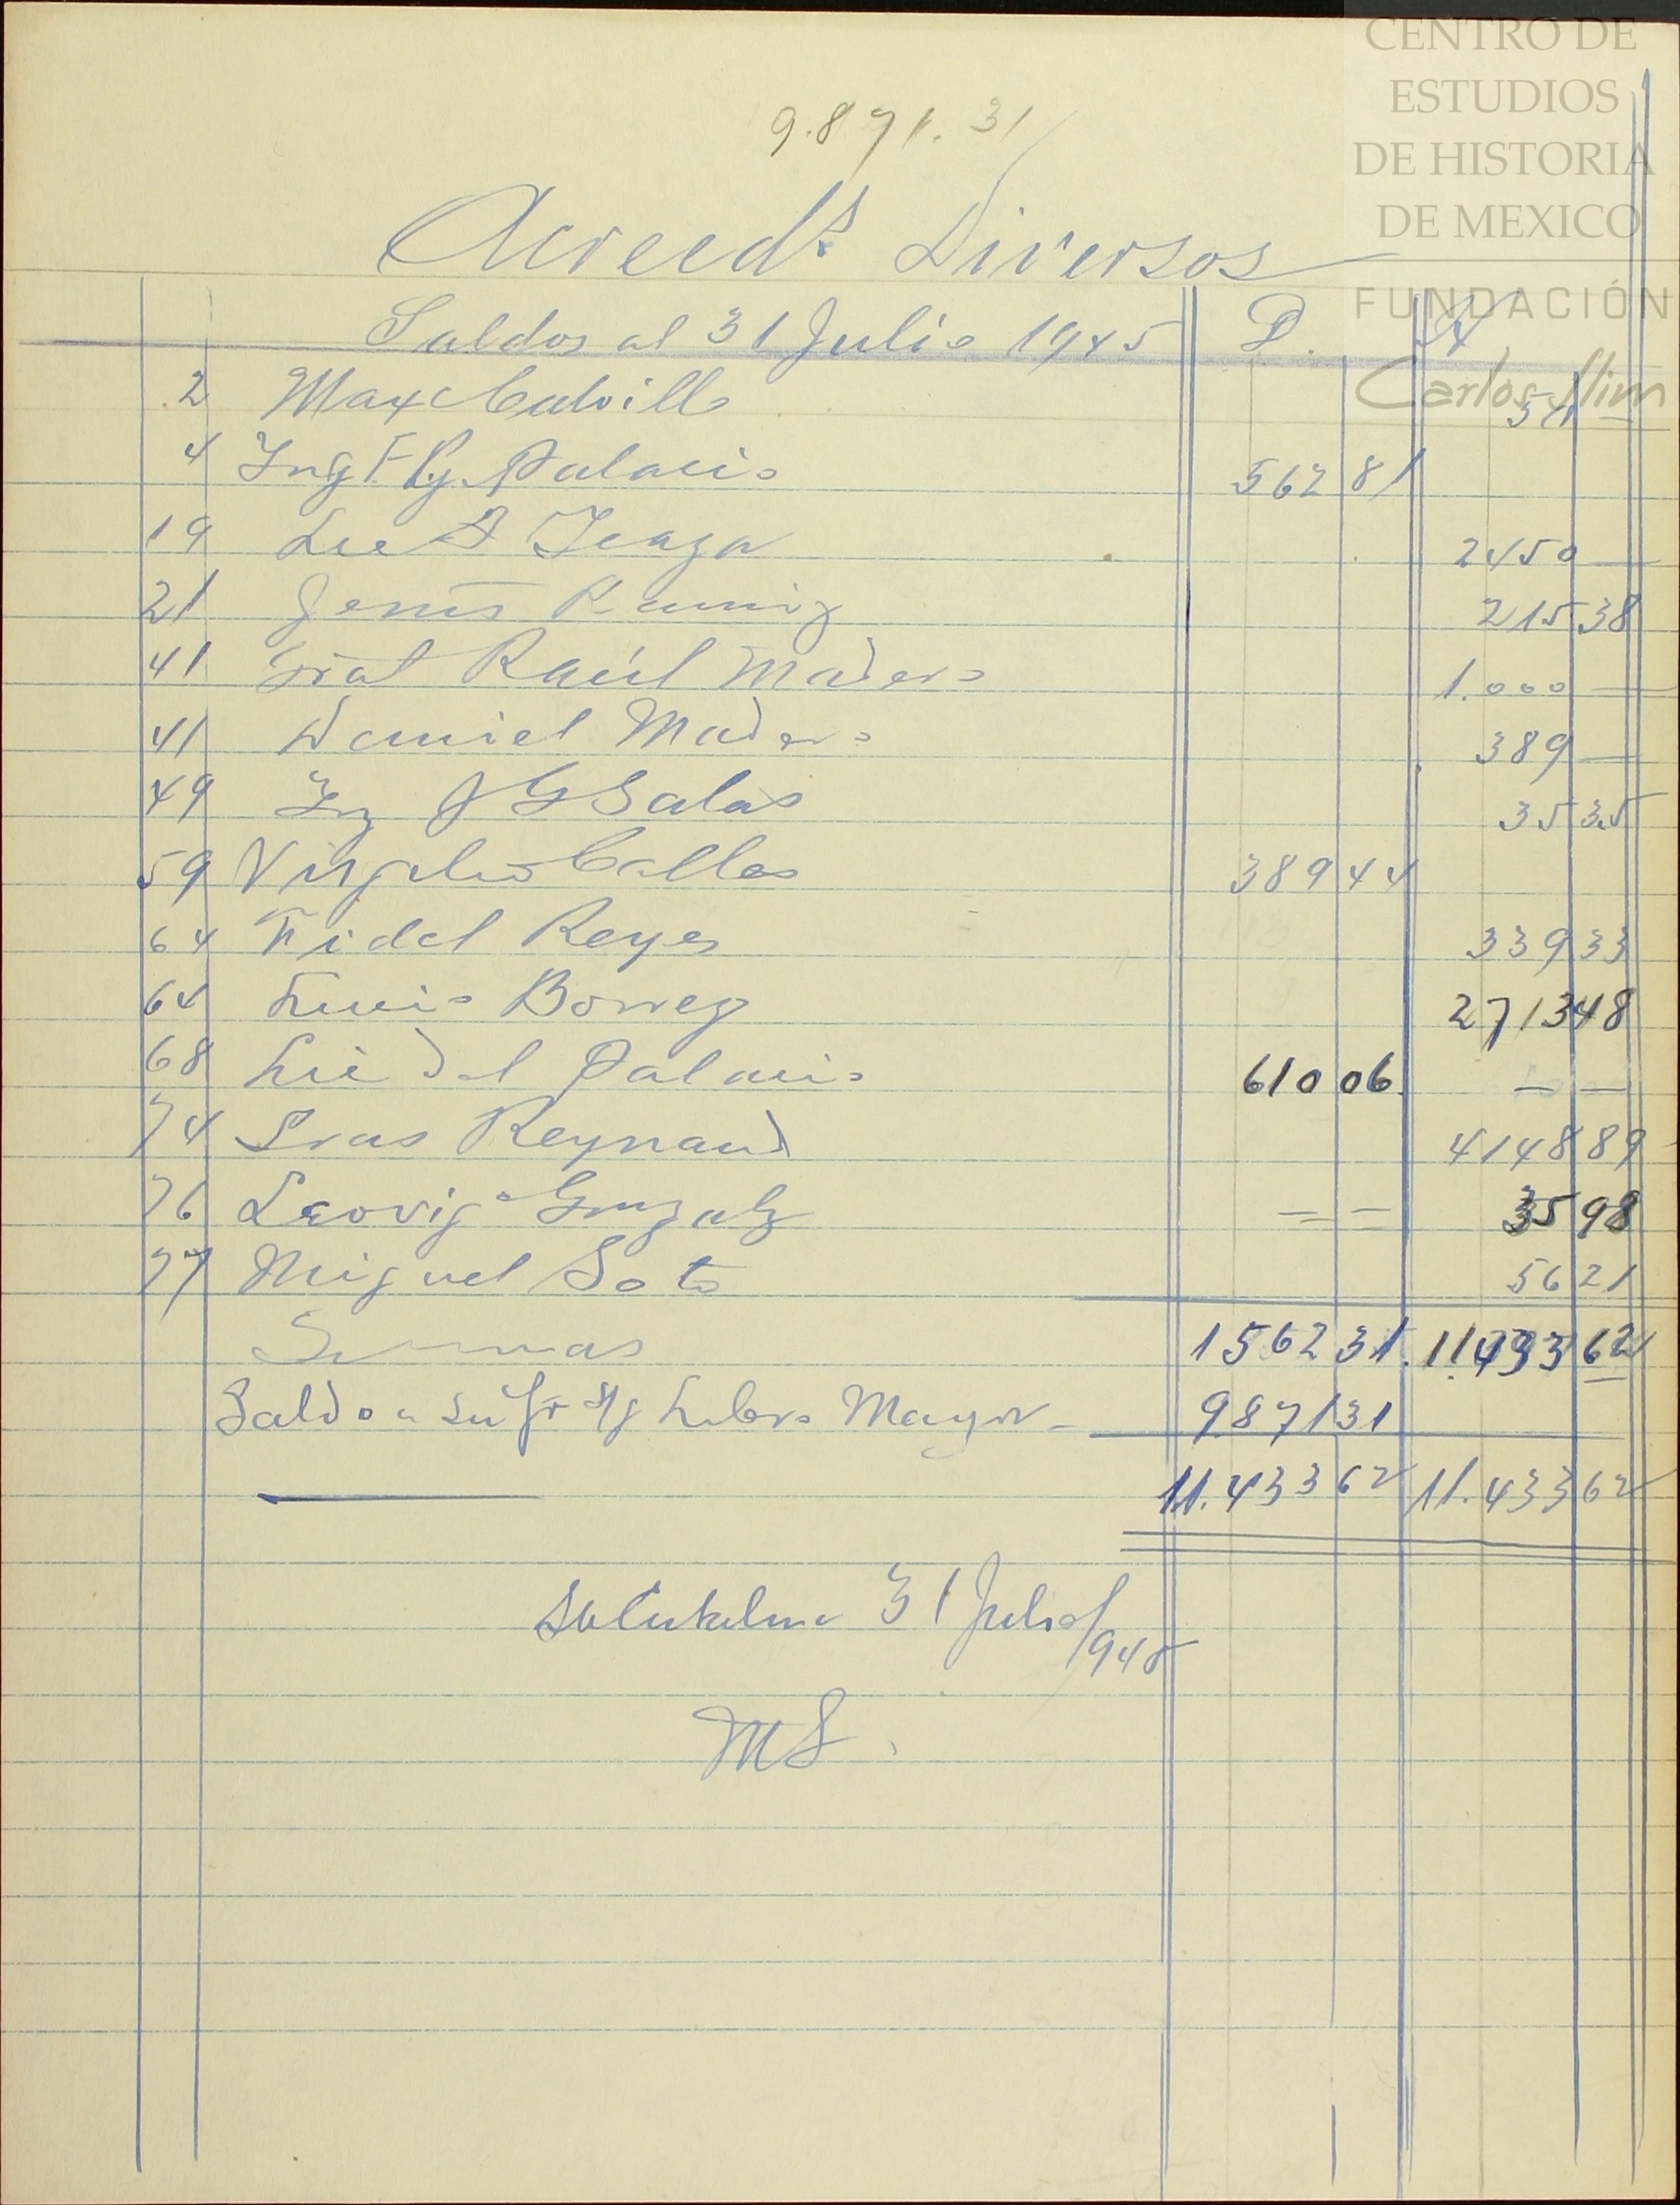 CENTRO DE
ESTUDIOS
DE HISTORIA
DE MEXICO
FUNDACIÓN
Carlos Slim
9.871.31
Acreeds Diversos
Saldos al 31 Julio 1945 D. H
2 Max Calvillo 50 —
4 Ing F Pg. Palacio 562 81
19 Lic 2450 —
21 Jesus Ramirz 215 38
41 Gral Raúl Madero 1.000 —
41 Daniel Madero 389 —
49 Ing J G Salas 35 35
59 Virgilio Calles 389 44
64 Fidel Reyes 339 33
64 Luis Borreg 2713 48
68 Lic del Palacio 610 06. — —
74 Sras Reynaud 4148 89
76 Leovigo Gonzalz = = 35 98
77 Miguel Soto 56 21
Sumas 1562 31. 11.433 62
Saldo a su fr Libro Mayor 9871 31
11.433 62 11.433 62
31 Julio/945
MS.